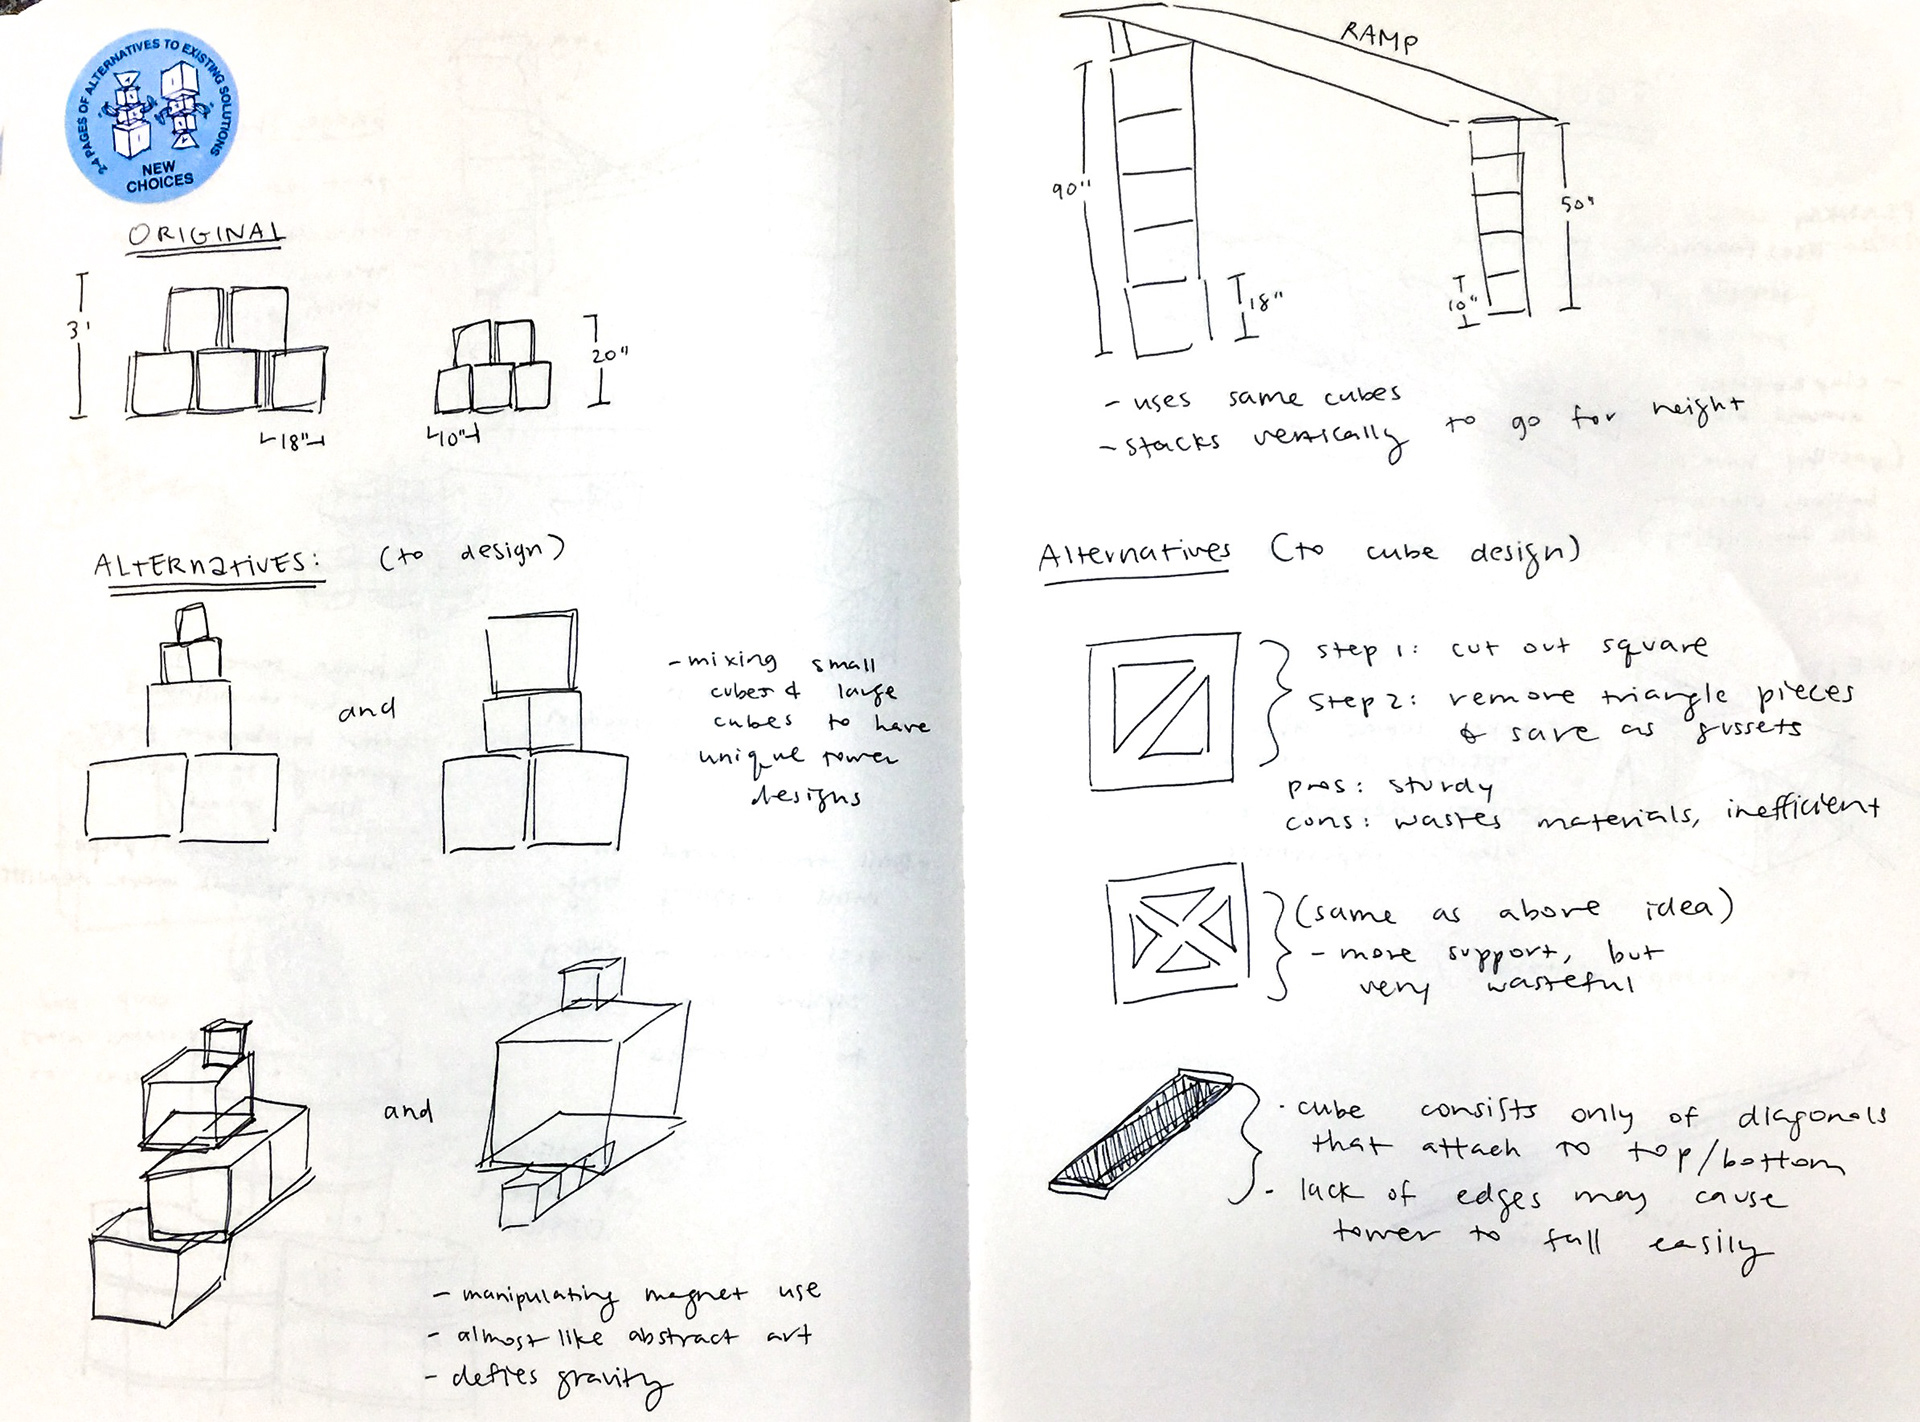 24 PAGES OF ALTERNATIVES TO EXISTING SOLUTIONS
NEW
CHOICES
ORIGINAL
3'
18"
20"
10"
ALTERNATIVES: (to design)
and
- mixing small
cubes & large
cubes to have
unique tower
designs
and
- manipulating magnet use
- almost like abstract art
- defies gravity
RAMP
90"
18"
50"
10"
- uses same cubes
- stacks vertically to go for height
Alternatives (to cube design)
step 1: cut out square
step 2: remove triangle pieces
& save as gussets
pros: sturdy
cons: wastes materials, inefficient
(same as above idea)
- more support, but
very wasteful
· cube consists only of diagonals
that attach to top/bottom
- lack of edges may cause
tower to fall easily